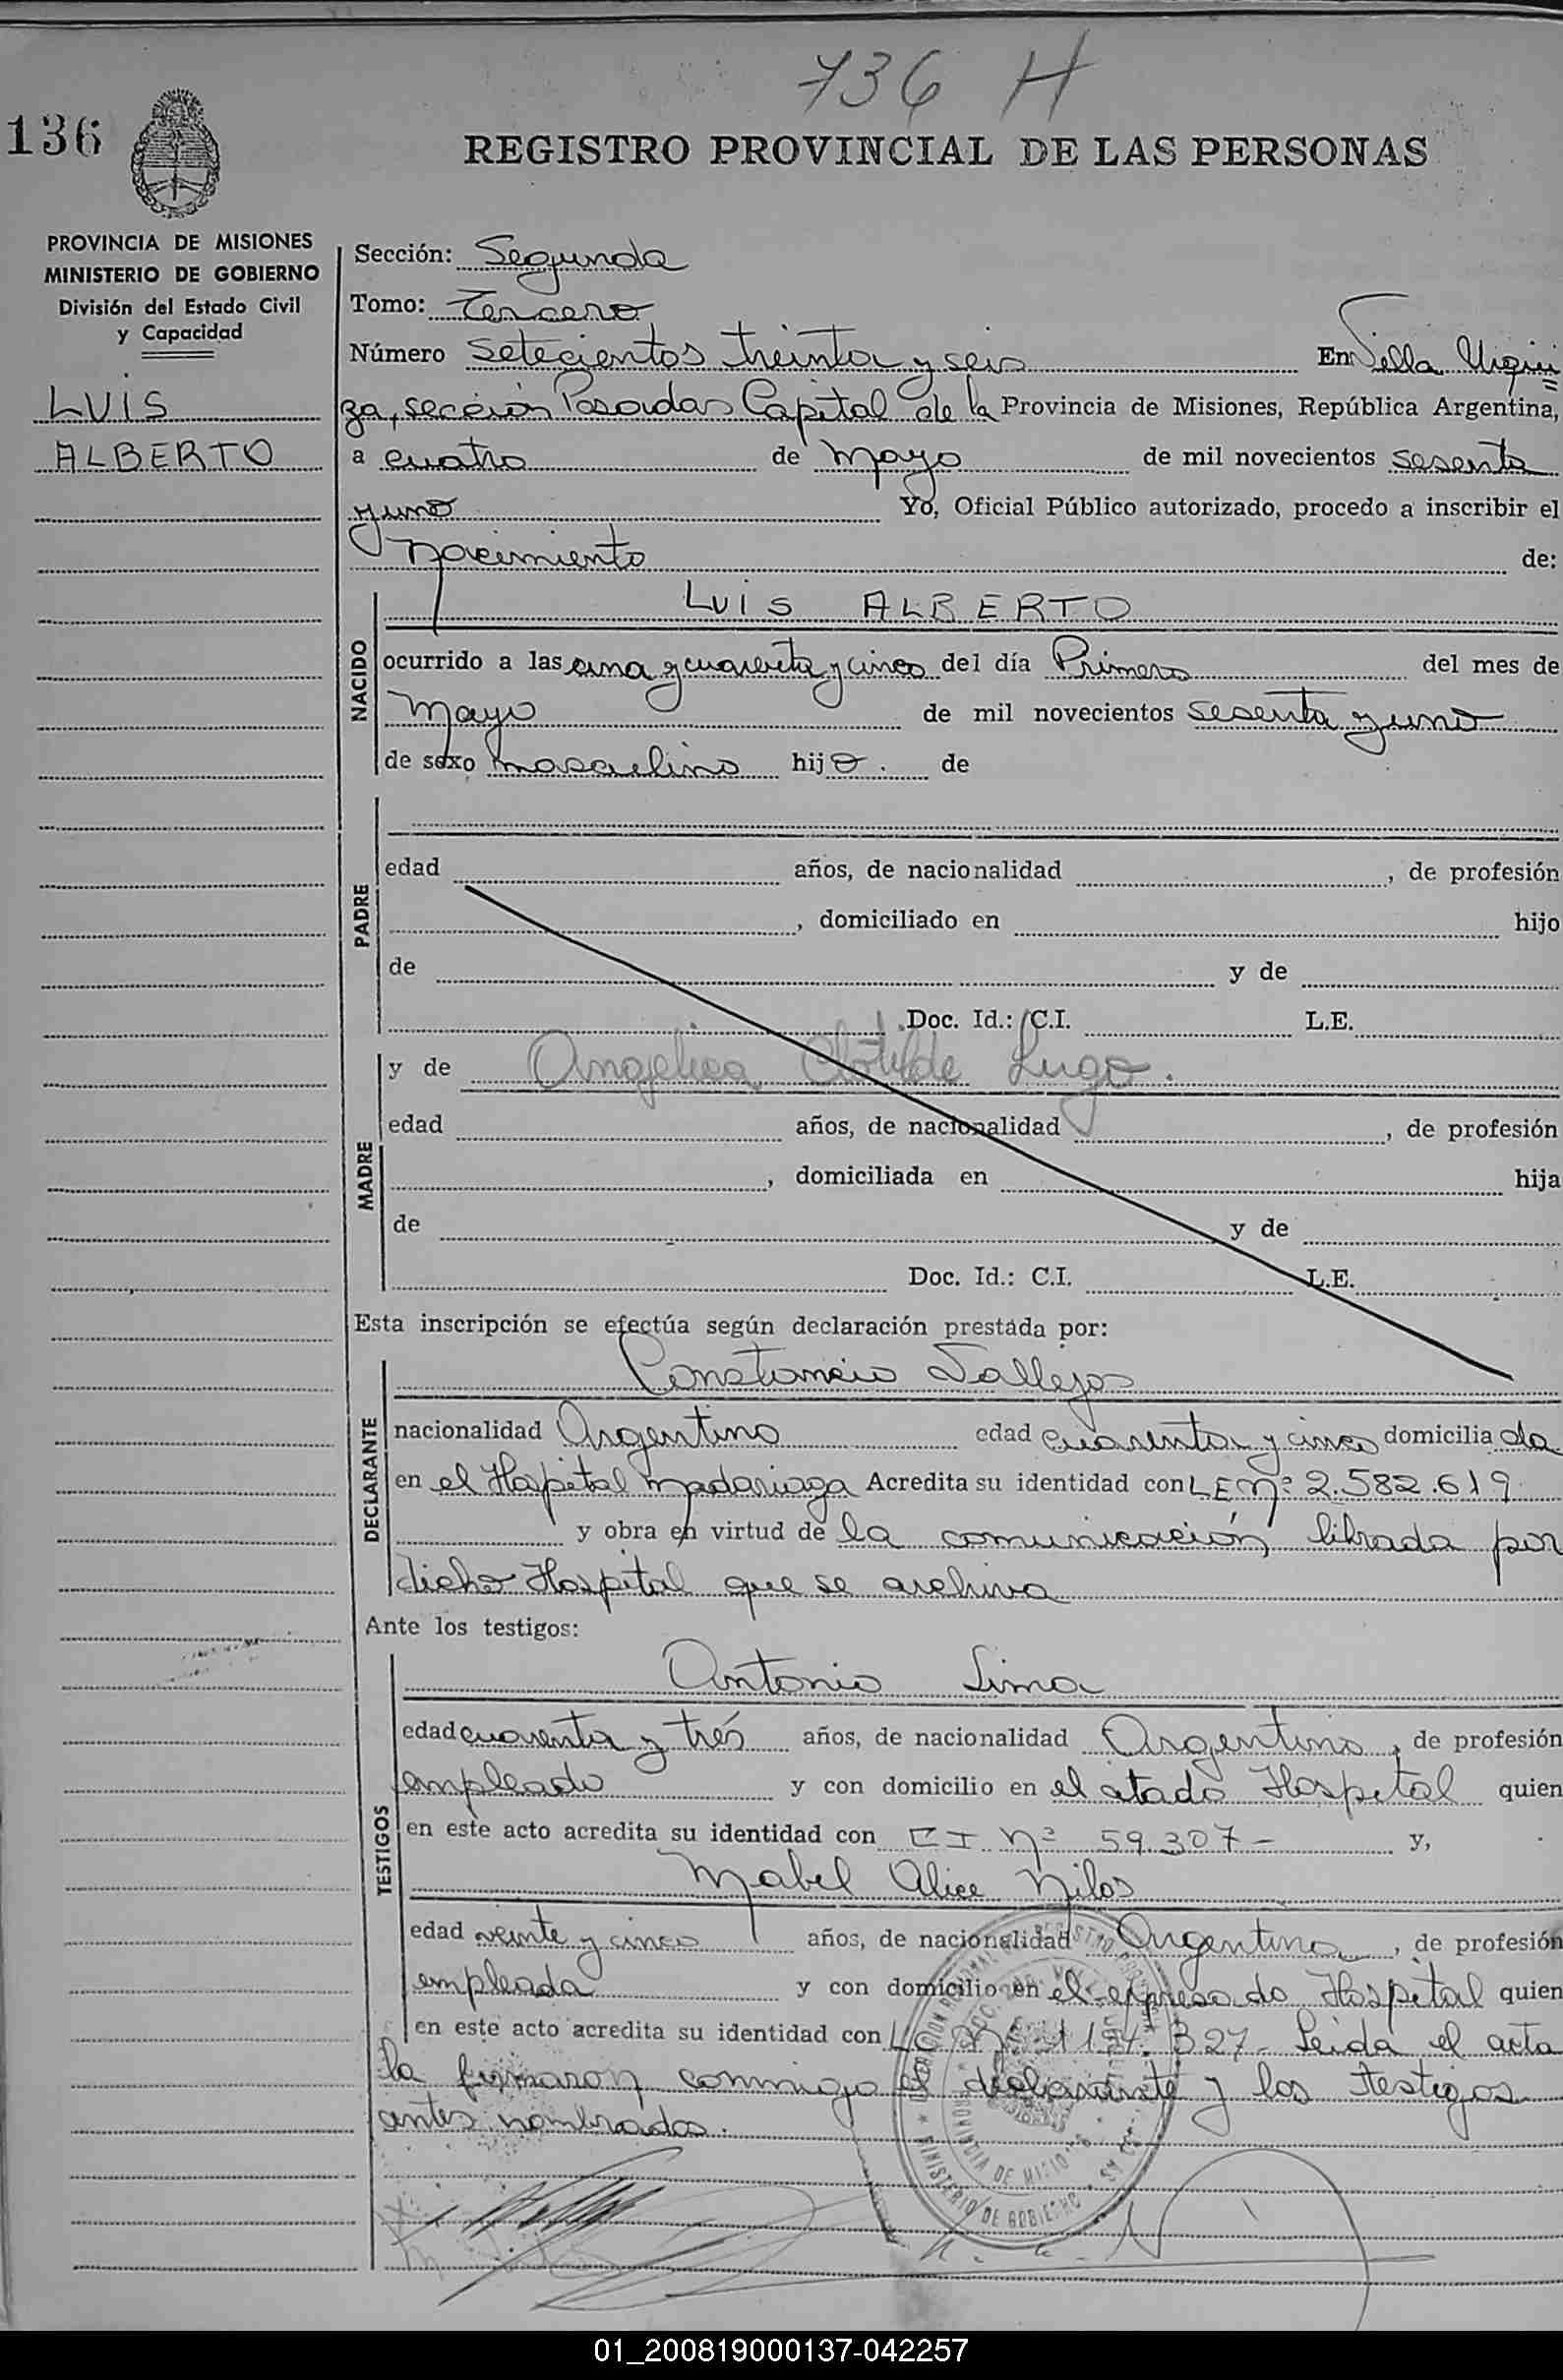 736 H
136
REGISTRO PROVINCIAL DE LAS PERSONAS
PROVINCIA DE MISIONES
MINISTERIO DE GOBIERNO
División del Estado Civil
y Capacidad
LUIS
ALBERTO
Sección: Segunda
Tomo: Tercero
Número setecientos treinta y seis En Villa Urqui
za, sección Posadas Capital de la Provincia de Misiones, República Argentina,
a cuatro de Mayo de mil novecientos sesenta
y uno Yo, Oficial Público autorizado, procedo a inscribir el
nacimiento de:
NACIDO
LUIS ALBERTO
ocurrido a las una y cuarenta y cinco del día Primero del mes de
Mayo de mil novecientos sesenta y uno
de sexo masculino hijo. de
PADRE
edad años, de nacionalidad , de profesión
, domiciliado en hijo
de y de
Doc. Id.: C.I. L.E.
y de Angelica Clotilde Lugo.
MADRE
edad años, de nacionalidad , de profesión
, domiciliada en hija
de y de
Doc. Id.: C.I. L.E.
Esta inscripción se efectúa según declaración prestada por:
DECLARANTE
Constancio Vallejos
nacionalidad Argentino edad cuarenta y cinco domiciliada
en el Hospital Madariaga Acredita su identidad con LE Nº 2.582.619
y obra en virtud de la comunicación librada por
dicho Hospital que se archiva
Ante los testigos:
TESTIGOS
Antonio Lima
edad cuarenta y trés años, de nacionalidad Argentino, de profesión
empleado y con domicilio en el citado Hospital quien
en este acto acredita su identidad con CI Nº 59.307- y,
Mabel Alice Nilos
edad veinte y cinco años, de nacionalidad Argentina, de profesión
empleada y con domicilio en el expresado Hospital quien
en este acto acredita su identidad con LC 327- Leida el acta
la firmaron conmigo el declarante y los testigos
antes nombrados.
PROVINCIA DE MISIONES
MINISTERIO DE GOBIERNO
01_200819000137-042257